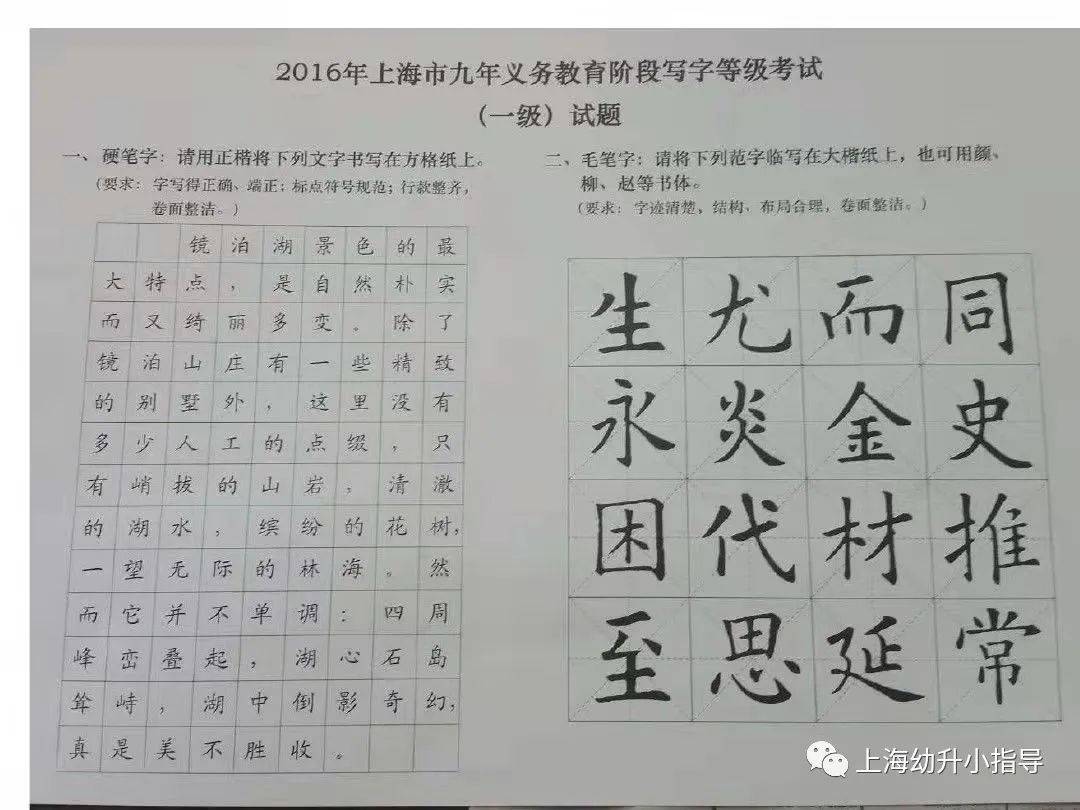 2016年上海市九年义务教育阶段写字等级考试
（一级）试题
一、硬笔字：请用正楷将下列文字书写在方格纸上。
（要求：字写得正确、端正；标点符号规范；行款整齐，
卷面整洁。）
镜泊湖景色的最
大特点，是自然朴实
而又绮丽多变。除了
镜泊山庄有一些精致
的别墅外，这里没有
多少人工的点缀，只
有峭拔的山岩，清澈
的湖水，缤纷的花树，
一望无际的林海。然
而它并不单调：四周
峰峦叠起，湖心石岛
耸峙，湖中倒影奇幻，
真是美不胜收。
二、毛笔字：请将下列范字临写在大楷纸上，也可用颜、
柳、赵等书体。
（要求：字迹清楚，结构、布局合理，卷面整洁。）
生尤而同
永炎金史
困代材推
至思延常
上海幼升小指导